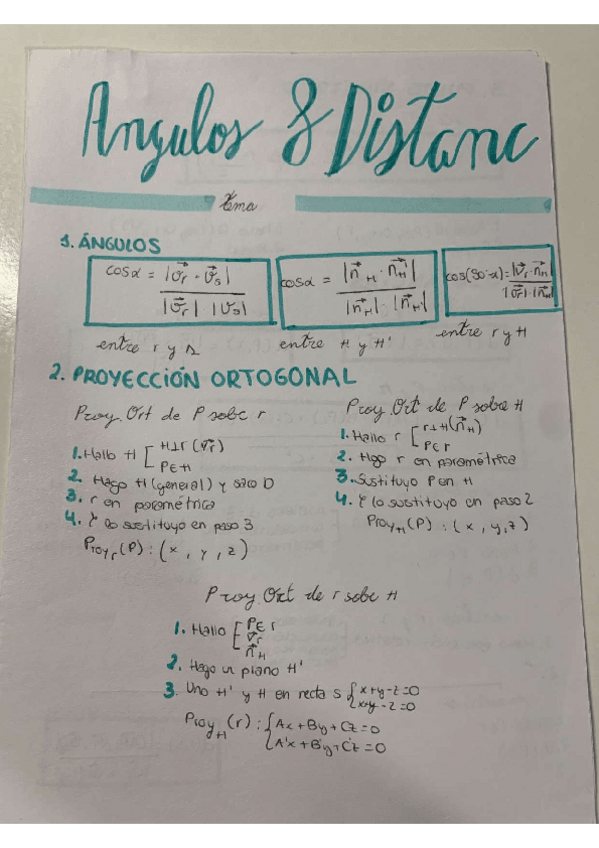 Angulos & Distanc
tema
1. ÁNGULOS
cosα = |v⃗r · v⃗s| / |v⃗r| · |v⃗s|
cosα = |n⃗π · n⃗π'| / |n⃗π| · |n⃗π'|
cos(90-α) = |v⃗r · n⃗π| / |v⃗r| · |n⃗π|
entre r y s
entre π y π'
entre r y π
2. PROYECCIÓN ORTOGONAL
Proy. Ort de P sobe r
1. Hallo π [ π⊥r (v⃗r)
P∈π
2. Hago π (general) y saco D
3. r en paramétrica
4. Y lo sustituyo en paso 3
Proyr (P) : (x, y, z)
Proy. Ort de P sobre π
1. Hallo r [ r⊥π (n⃗π)
P∈r
2. Hago r en paramétrica
3. Sustituyo P en π
4. Y lo sustituyo en paso 2
Proyπ (P) : (x, y, z)
Proy. Ort de r sobe π
1. Hallo [ P∈r
v⃗r
n⃗π
2. Hago un plano π'
3. Uno π' y π en recta s { x+y-z=0
x+y-z=0
Proyπ (r) : { Ax + By + Cz = 0
A'x + B'y + C'z = 0